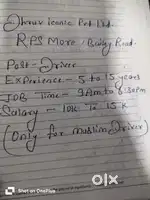 Dhruv iconic Pvt Ltd.
RPS More, Bailey Road.
Post - Driver
Experience - 5 to 15 years
JOB Time - 9 Am to 8:30 pm
Salary - 10K To 15 K
(Only for muslim Driver)
Shot on OnePlus
olx